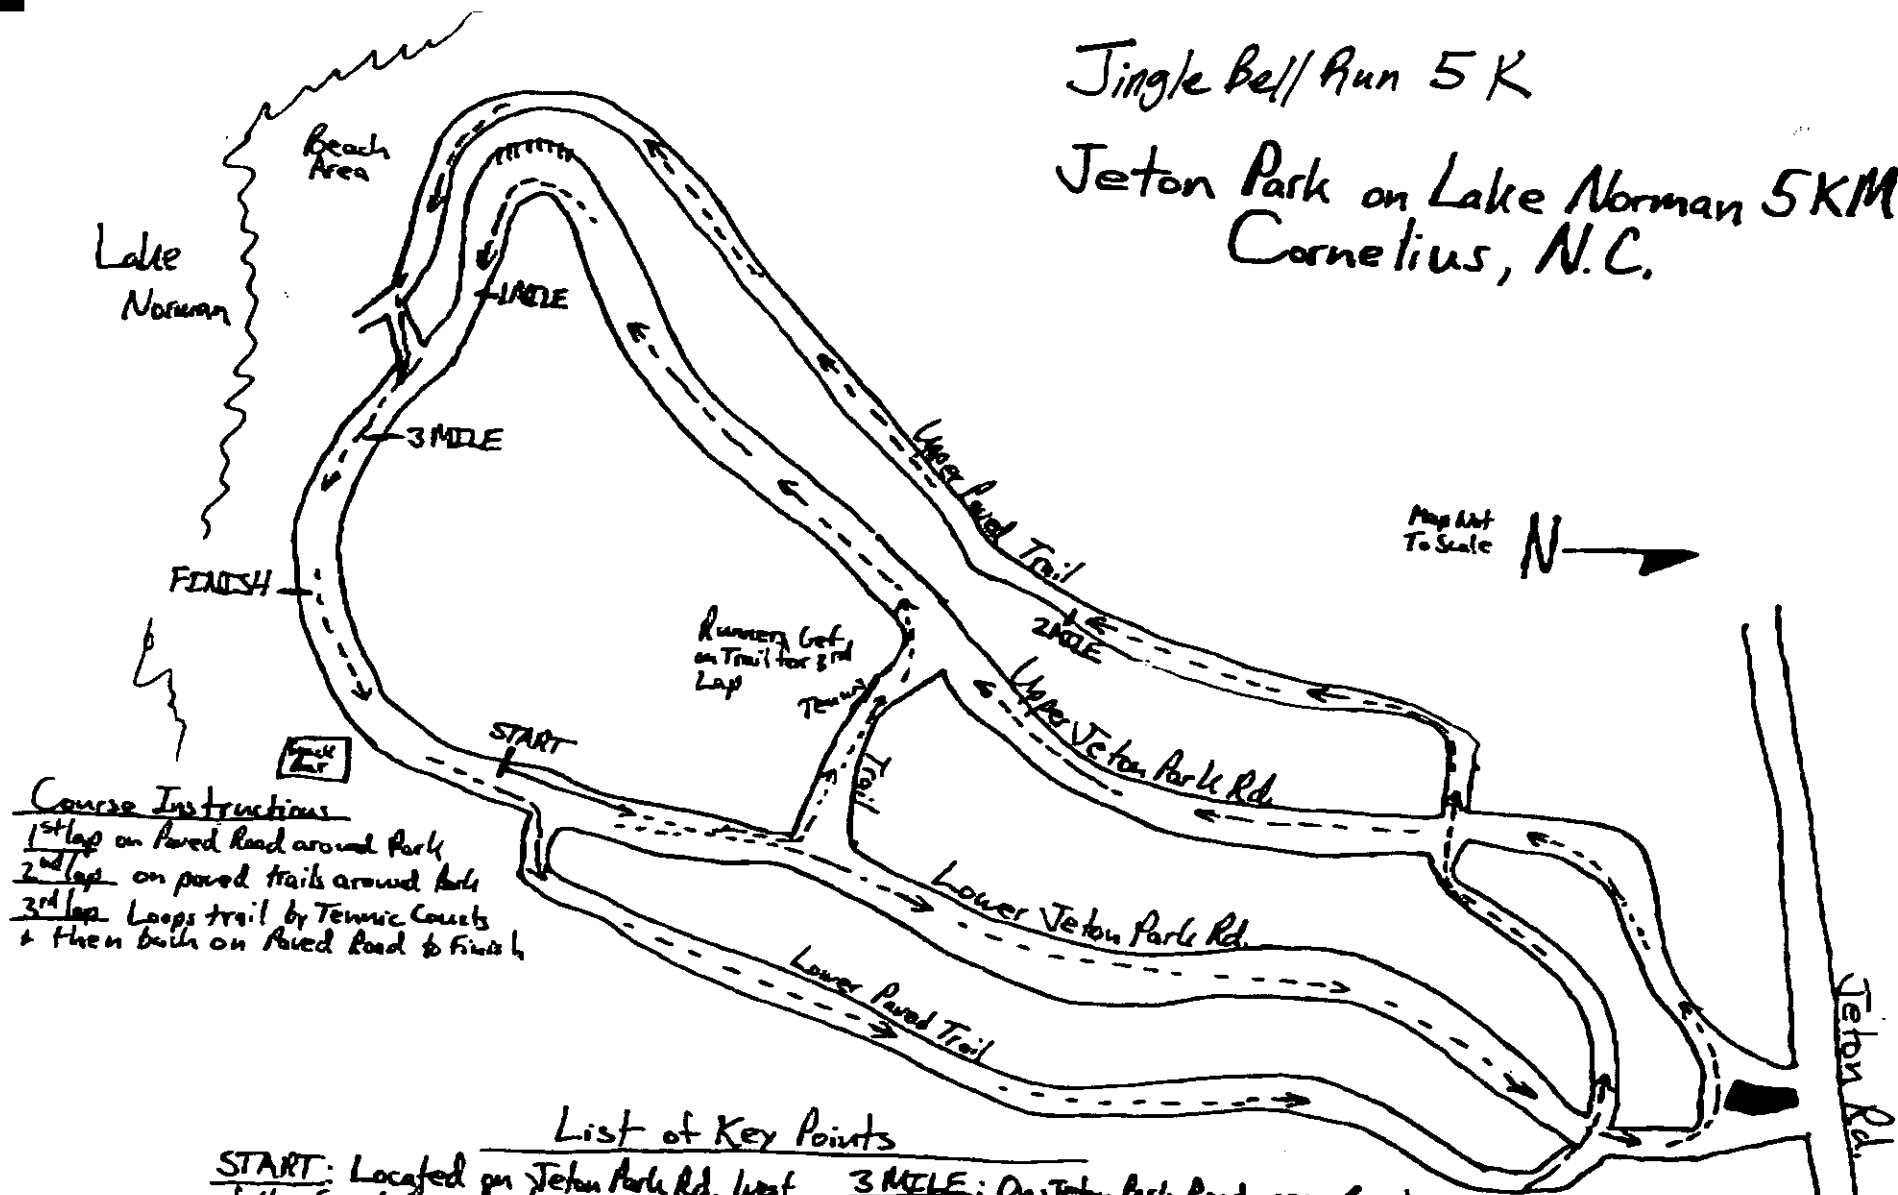 Jingle Bell Run 5K
Jeton Park on Lake Norman 5KM
Cornelius, N.C.
Beach
Area
Lake
Norman
1MILE
3 MILE
Upper Paved Trail
Map Not
To Scale
N
FINISH
2MILE
Runners Get
on Trail for 3rd
Lap
Tennis
Trail
Upper Jeton Park Rd.
START
Snack
Bar
Course Instructions
1st lap on Paved Road around Park
2nd lap on paved trails around Park
3rd lap Loops trail by Tennis Courts
+ then back on Paved Road to Finish
Lower Jeton Park Rd.
Lower Paved Trail
Jeton Rd.
List of Key Points
START: Located on Jeton Park Rd.
3 MILE: On Jeton Park Road